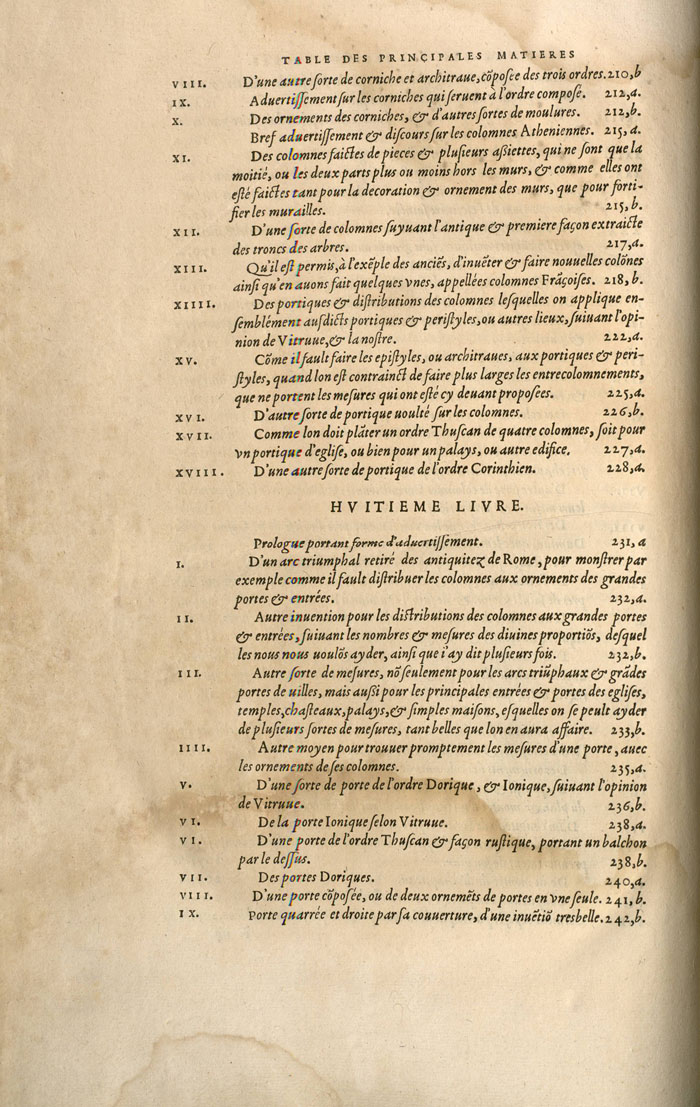 TABLE DES PRINCIPALES MATIERES
VIII. D'une autre sorte de corniche et architraue, cõposée des trois ordres. 210, b
IX. Aduertissement sur les corniches qui seruent à l'ordre composé. 212, a.
X. Des ornements des corniches, & d'autres sortes de moulures. 212, b.
Bref aduertissement & discours sur les colomnes Atheniennes. 215, a.
XI. Des colomnes faictes de pieces & plusieurs assiettes, qui ne sont que la
moitié, ou les deux parts plus ou moins hors les murs, & comme elles ont
esté faictes tant pour la decoration & ornement des murs, que pour forti-
fier les murailles. 215, b.
XII. D'une sorte de colomnes suyuant l'antique & premiere façon extraicte
des troncs des arbres. 217, a.
XIII. Qu'il est permis, à l'exẽple des anciẽs, d'inuẽter & faire nouuelles colõnes
ainsi qu'en auons fait quelques vnes, appellées colomnes Frãçoises. 218, b.
XIIII. Des portiques & distributions des colomnes lesquelles on applique en-
semblément ausdicts portiques & peristyles, ou autres lieux, suiuant l'opi-
nion de Vitruue, & la nostre. 222, a.
XV. Cõme il fault faire les epistyles, ou architraues, aux portiques & peri-
styles, quand lon est contrainct de faire plus larges les entrecolomnements,
que ne portent les mesures qui ont esté cy deuant proposees. 225, a.
XVI. D'autre sorte de portique uoulté sur les colomnes. 226, b.
XVII. Comme lon doit plãter un ordre Thuscan de quatre colomnes, soit pour
vn portique d'eglise, ou bien pour un palays, ou autre edifice. 227, a.
XVIII. D'une autre sorte de portique de l'ordre Corinthien. 228, a.
HVITIEME LIVRE.
Prologue portant forme d'aduertissement. 231, a
I. D'un arc triumphal retiré des antiquitez de Rome, pour monstrer par
exemple comme il fault distribuer les colomnes aux ornements des grandes
portes & entrées. 232, a.
II. Autre inuention pour les distributions des colomnes aux grandes portes
& entrées, suiuant les nombres & mesures des diuines proportiõs, desquel
les nous nous uoulõs ayder, ainsi que i'ay dit plusieurs fois. 232, b.
III. Autre sorte de mesures, nõ seulement pour les arcs triũphaux & grãdes
portes de uilles, mais aussi pour les principales entrées & portes des eglises,
temples, chasteaux, palays, & simples maisons, esquelles on se peult ayder
de plusieurs sortes de mesures, tant belles que lon en aura affaire. 233, b.
IIII. Autre moyen pour trouuer promptement les mesures d'une porte, auec
les ornements de ses colomnes. 235, a.
V. D'une sorte de porte de l'ordre Dorique, & Ionique, suiuant l'opinion
de Vitruue. 236, b.
VI. De la porte Ionique selon Vitruue. 238, a.
VI. D'une porte de l'ordre Thuscan & façon rustique, portant un balchon
par le dessus. 238, b.
VII. Des portes Doriques. 240, a.
VIII. D'une porte cõposée, ou de deux ornemẽts de portes en vne seule. 241, b.
IX. Porte quarrée et droite par sa couuerture, d'une inuẽtiõ tresbelle. 242, b.